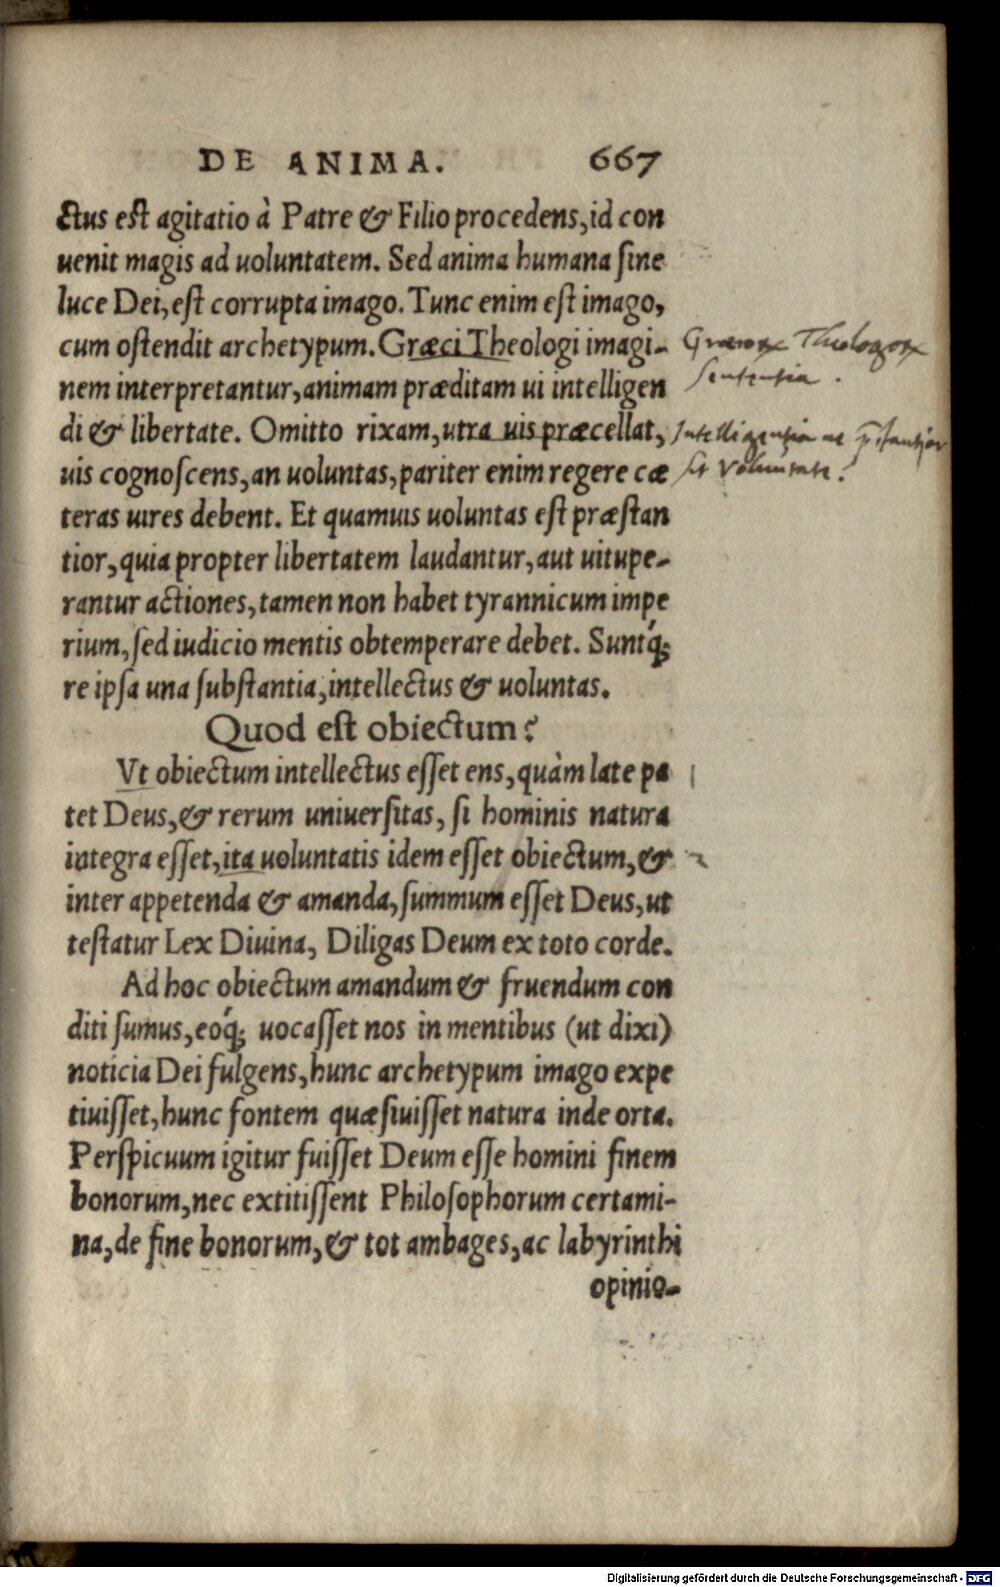 DE ANIMA. 667
ctus est agitatio à Patre & Filio procedens, id con
uenit magis ad uoluntatem. Sed anima humana sine
luce Dei, est corrupta imago. Tunc enim est imago,
cum ostendit archetypum. Græci Theologi imagi-
nem interpretantur, animam præditam ui intelligen
di & libertate. Omitto rixam, utra uis præcellat,
uis cognoscens, an uoluntas, pariter enim regere cæ
teras uires debent. Et quamuis uoluntas est præstan
tior, quia propter libertatem laudantur, aut uitupe-
rantur actiones, tamen non habet tyrannicum impe
rium, sed iudicio mentis obtemperare debet. Suntq́;
re ipsa una substantia, intellectus & uoluntas.
Quod est obiectum?
Vt obiectum intellectus esset ens, quàm late pa
tet Deus, & rerum uniuersitas, si hominis natura
integra esset, ita uoluntatis idem esset obiectum, &
inter appetenda & amanda, summum esset Deus, ut
testatur Lex Diuina, Diligas Deum ex toto corde.
Ad hoc obiectum amandum & fruendum con
diti sumus, eoq́; uocasset nos in mentibus (ut dixi)
noticia Dei fulgens, hunc archetypum imago expe
tiuisset, hunc fontem quæsiuisset natura inde orta.
Perspicuum igitur fuisset Deum esse homini finem
bonorum, nec extitissent Philosophorum certami-
na, de fine bonorum, & tot ambages, ac labyrinthi
opinio-
Græcoꝝ Theologoꝝ
sententia.
Intelligentia ne p̄stantior
sit Voluntate?
Digitalisierung gefördert durch die Deutsche Forschungsgemeinschaft - DFG